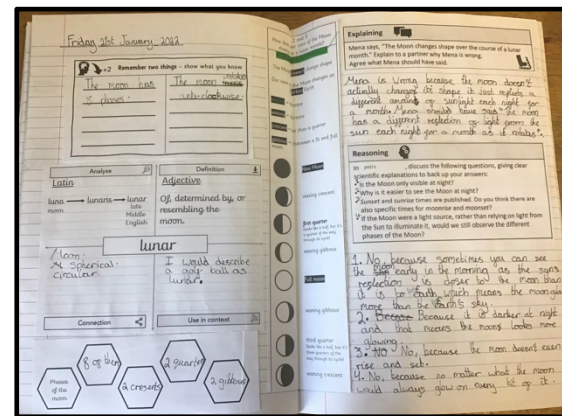 Friday 21st January 2022
+2 Remember two things - show what you know
The moon has
8 phases.
The moon rotates
anti-clockwise.
Analyse
Latin
luna → lunaris → lunar
moon.
late
Middle
English
Definition
Adjective
Of, determined by, or
resembling the
moon.
lunar
Moon.
Spherical.
circular.
I would describe
a golf ball as
lunar.
Connection
Use in context
Phases
of the
moon.
8 of them
2 cresents
2 quarter
2 gibbous
New Moon
waxing crescent
first quarter
waxing gibbous
Full moon
waning gibbous
third quarter
waning crescent
Explaining
Mena says, "The Moon changes shape over the course of a lunar
month." Explain to a partner why Mena is wrong.
Agree what Mena should have said.
Mena is wrong because the moon doesn't
actually change its shape it just reflects a
different amount of sunlight each night for
a month. Mena should have said "the moon
has a different reflection of light from the
sun each night for a month as it rotates".
Reasoning
In pairs, discuss the following questions, giving clear
scientific explanations to back up your answers:
Is the Moon only visible at night?
Why is it easier to see the Moon at night?
Sunset and sunrise times are published. Do you think there are
also specific times for moonrise and moonset?
If the Moon were a light source, rather than relying on light from
the Sun to illuminate it, would we still observe the different
phases of the Moon?
1. No, because sometimes you can see
the moon early in the morning as the suns
reflection is closer to the moon than
it is to earth which means the moon glows
more than the Earth's sky.
2. Because it is darker at night
and that means the moon looks more
glowing.
3. No, because the moon doesn't even
rise and set.
4. No, because no matter what the moon
would always glow on every bit of it.